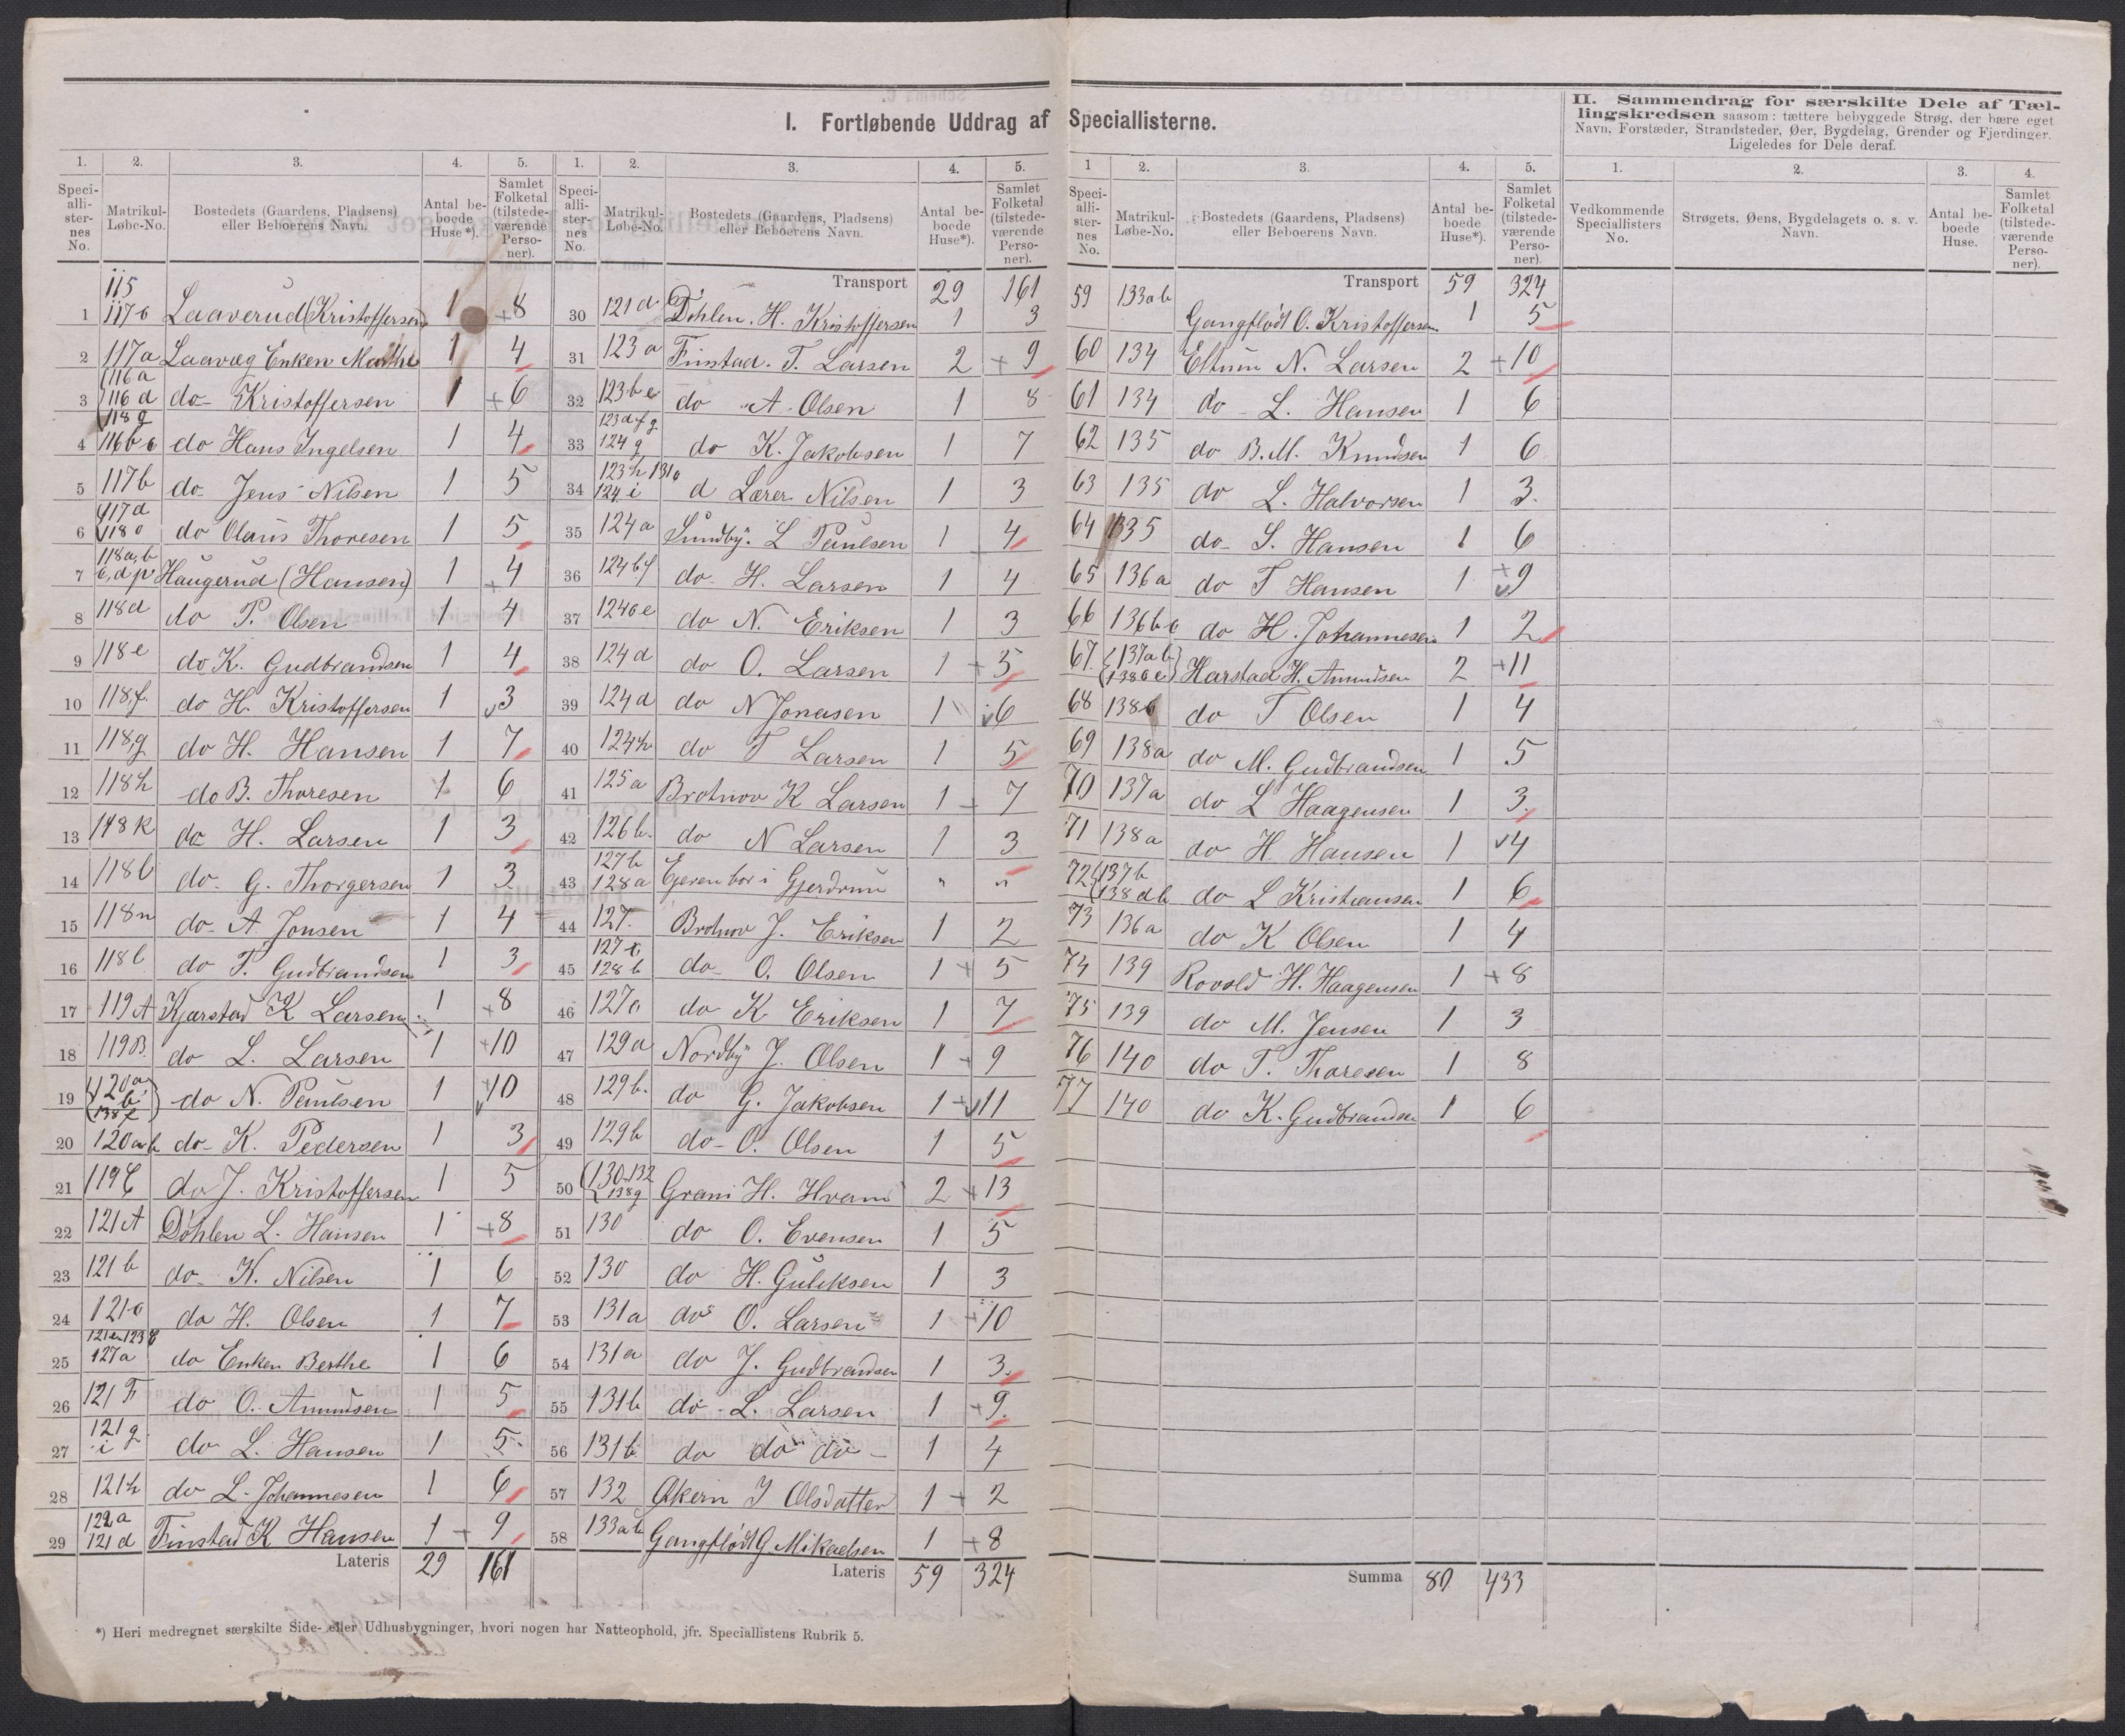 I. Fortløbende Uddrag af Speciallisterne.
II. Sammendrag for særskilte Dele af Tæl-
lingskredsen saasom: tættere bebyggede Strøg, der bære eget
Navn, Forstæder, Strandsteder, Øer, Bygdelag, Grender og Fjerdinger.
Ligeledes for Dele deraf.
1. 2. 3. 4. 5.
Speci-alli-ster-nes No. Matrikul-Løbe-No. Bostedets (Gaardens, Pladsens) eller Beboerens Navn. Antal be-boede Huse*). Samlet Folketal (tilstede-værende Perso-ner).
115
1 117c Laaverud (Kristoffersen) 1 + 8
2 117a Laavæg Enken Marthe 1 4
116a
3 116d do Kristoffersen 1 + 6
118q
4 116b c do Hans Ingelsen 1 4
5 117b do Jens Nilsen 1 5
117d
6 118o do Olaus Thoresen 1 5
118a,b
7 c,d,p Haugerud (Hansen) 1 + 4
8 118d do P. Olsen 1 4
9 118e do K. Gudbrandsen 1 4
10 118f. do H. Kristoffersen 1 v 3
11 118g do H. Hansen 1 7
12 118h do B. Thoresen 1 6
13 118k do H. Larsen 1 3
14 118l do G. Thorgersen 1 3
15 118n do A Jonsen 1 4
16 118l do T. Gudbrandsen 1 3
17 119A Kjærstad K Larsen 1 + 8
18 119B do L. Larsen 1 + 10
19 120a b 138f do N. Paulsen 1 + v 10
20 120a b do K. Pedersen 1 3
21 119C do J. Kristoffersen 1 5
22 121A Døhlen L. Hansen 1 + 8
23 121b do K. Nilsen 1 6
24 121c do H. Olsen 1 7
121e 123c
25 127a do Enken Berthe 1 6
26 121F do O. Amundsen 1 5
27 121g i do L. Hansen 1 5
28 121h do L. Johannesen 1 6
122a
29 121d Finstad K Hansen 1 + 9
Lateris 29 161
1. 2. 3. 4. 5.
Speci-alli-ster-nes No. Matrikul-Løbe-No. Bostedets (Gaardens, Pladsens) eller Beboerens Navn. Antal be-boede Huse*). Samlet Folketal (tilstede-værende Perso-ner).
Transport 29 161
30 121d Døhlen. H. Kristoffersen 1 3
31 123a Finstad. T. Larsen 2 + 9
32 123b e do A. Olsen 1 8
123d f g
33 124g do K. Jakobsen 1 7
123h 131c
34 124i d Lærer Nilsen 1 3
35 124a Sundby. L Paulsen 1 4
36 124b f do H. Larsen 1 4
37 124c e do N. Eriksen 1 3
38 124d do O. Larsen 1 + 5
39 124d do N Jonasen 1 v 6
40 124h do T Larsen 1 5
41 125a Brotnov K Larsen 1 + 7
42 126b. do N Larsen 1 3
127b
43 128a Ejeren bor i Gjerdrum " "
44 127. Brotnov J. Eriksen 1 2
127
45 128b do O. Olsen 1 + 5
46 127c do K Eriksen 1 7
47 129a Nordby J. Olsen 1 + 9
48 129b. do G. Jakobsen 1 + v 11
49 129b do O. Olsen 1 5
50 130.132 138g Grani H. Hvam 2 + 13
51 130 do O. Evensen 1 5
52 130 do H. Guliksen 1 3
53 131a do O. Larsen 1 + 10
54 131a do J. Gudbrandsen 1 3.
55 131b do L. Larsen 1 + 9.
56 131b do do do 1 4
57 132 Økern I Olsdatter 1 + 2
58 133a b Gangflødt G. Mikaelsen 1 + 8
Lateris 59 324
1 2. 3. 4. 5.
Speci-alli-ster-nes No. Matrikul-Løbe-No. Bostedets (Gaardens, Pladsens) eller Beboerens Navn. Antal be-boede Huse*). Samlet Folketal (tilstede-værende Perso-ner).
Transport 59 324
59 133a b Gangflødt O. Kristoffersen 1 5
60 134 Eltum N. Larsen 2 + 10
61 134 do L. Hansen 1 6
62 135 do B. M. Knudsen 1 6
63 135 do L. Halvorsen 1 3.
64 135 do S. Hansen 1 6
65 136a do T Hansen 1 + v 9
66 136b c do H. Johannesen 1 2
67. 137a b 138c e Harstad H. Amundsen 2 + 11
68 138c do T Olsen 1 4
69 138a do M. Gudbrandsen 1 5
70 137a do L Haagensen 1 3.
71 138a do H. Hansen 1 v 4
72 137b 138d b do L Kristiansen 1 6
73 136a do K Olsen 1 4
74 139 Rovold H. Haagensen 1 + 8
75 139 do M. Jensen 1 3
76 140 do T. Thoresen 1 8
77 140 do K. Gudbrandsen 1 6
Summa 80 433
1. 2. 3. 4.
Vedkommende Speciallisters No. Strøgets, Øens, Bygdelagets o. s. v. Navn. Antal be-boede Huse. Samlet Folketal (tilstede-værende Perso-ner).
*) Heri medregnet særskilte Side- eller Udhusbygninger, hvori nogen har Natteophold, jfr. Speciallistens Rubrik 5.